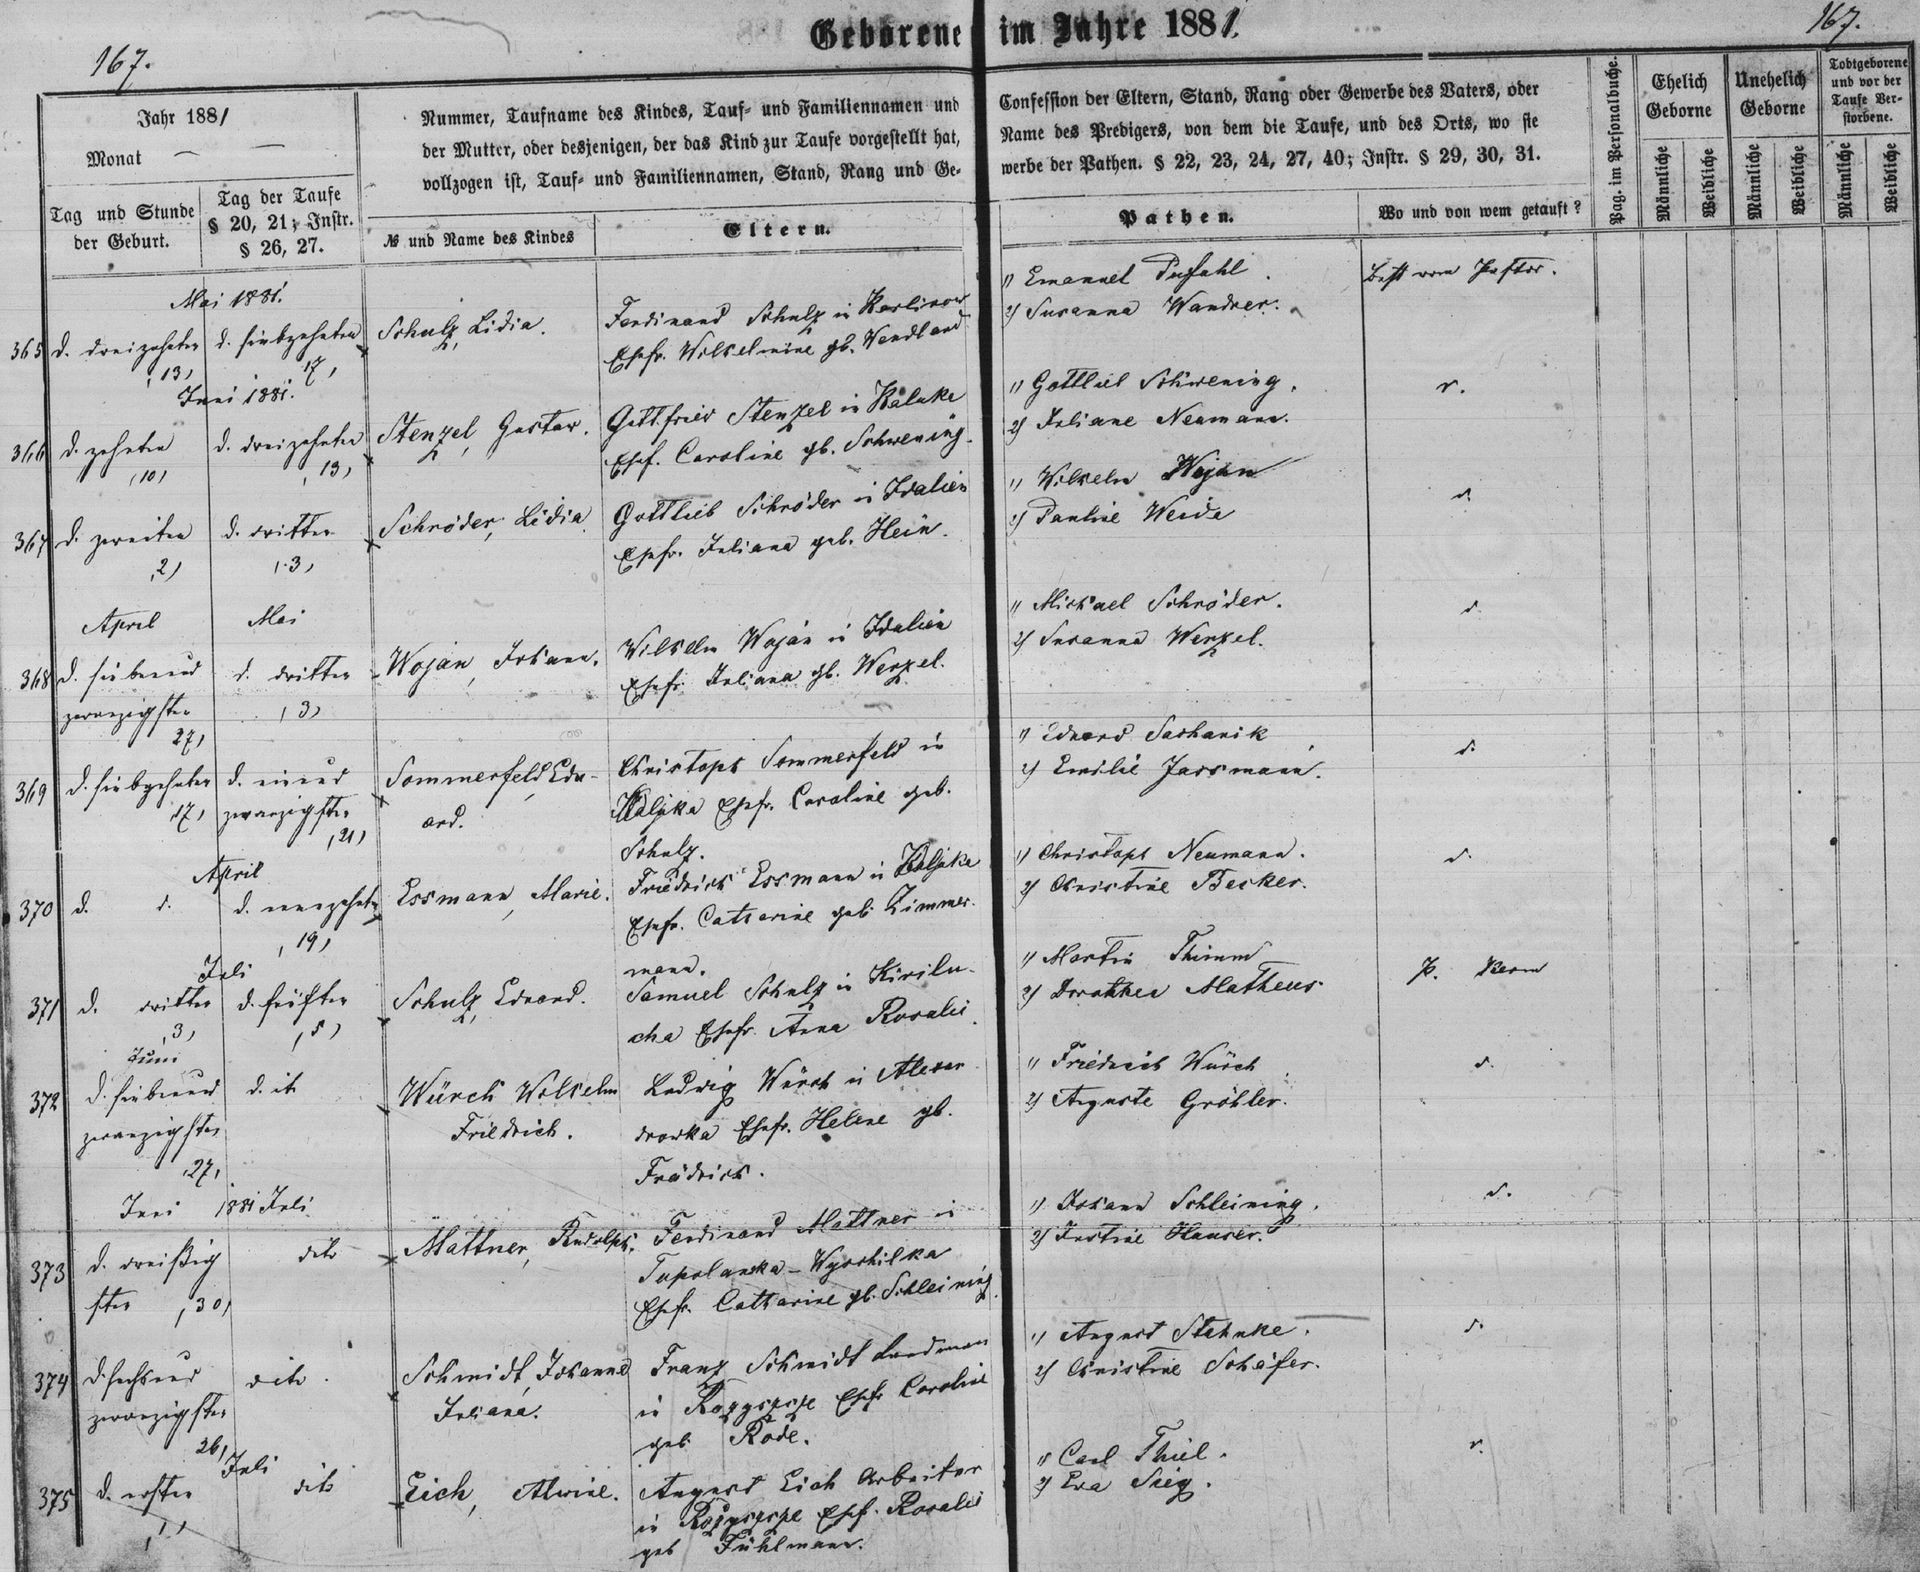 167.
Geborene im Jahre 1881.
167.
Jahr 1881
Monat — —
Tag und Stunde der Geburt.
Tag der Taufe § 20, 21; Instr. § 26, 27.
Nummer, Taufname des Kindes, Tauf- und Familiennamen und
der Mutter, oder desjenigen, der das Kind zur Taufe vorgestellt hat,
vollzogen ist, Tauf- und Familiennamen, Stand, Rang und Ge-
№ und Name des Kindes
Eltern.
Confession der Eltern, Stand, Rang oder Gewerbe des Vaters, oder
Name des Predigers, von dem die Taufe, und des Orts, wo sie
werbe der Pathen. § 22, 23, 24, 27, 40; Instr. § 29, 30, 31.
Pathen.
Wo und von wem getauft?
Pag. im Personalbuche.
Ehelich Geborne
Unehelich Geborne
Todtgeborene und vor der Taufe Verstorbene.
Männliche
Weibliche
Männliche
Weibliche
Männliche
Weibliche
Mai 1881.
365 d. dreizehnten d. siebzehnten Schulz, Lidia. Ferdinand Schulz in Karlinow
,13, 17, Ehefr. Wilhelmine gb. Wendland
1) Emanuel Pufahl.
2) Susanna Wandrer.
Juni 1881.
366 d. zehnten d. dreizehnten Stenzel, Gustav. Gottfried Stenzel in
,10, ,13, Ehef. Caroline gb. Schwening.
1) Gottlieb Schwening.
2) Juliane Neumann.
367 d. zweiten d. dritten Schröder, Lidia Gottlieb Schröder in Idalien
,2, ,3, Ehefr. Juliana geb. Hein.
1) Wilhelm Wojan
2) Pauline Weida
April Mai
368 d. siebenund d. dritten Wojan, Johann. Wilhelm Wojan in Idalien
zwanzigsten ,3, Ehefr. Juliana gb. Wenzel.
27,
1) Michael Schröder.
2) Susanna Wenzel.
369 d. siebzehnten d. einund Sommerfeld, Edu- Christoph Sommerfeld in
17, zwanzigsten ard. Ehefr. Caroline geb.
,21, Schulz.
1) Eduard
2) Emilie Jassmann.
April
370 d. d. d. neunzehnten Essmann, Marie. Friedrich Essmann in
,19, Ehefr. Catharine geb. Zimmer-
mann.
1) Christoph Neumann.
2) Christine Becker.
Juli
371 d. dritten d. fünften Schulz, Eduard. Samuel Schulz in Kirilu-
,3, ,5, cha Ehefr. Anna Rosalie.
1) Martin Thimm
2) Dorothea Matheus
Juni
372 d. siebenund d. it Würch Wilhelm Ludwig Würch in Alexan
zwanzigsten Friedrich. drowka Ehefr. Helene gb.
,27, Frädrich.
1) Friedrich Würch
2) Auguste Gröhler.
Juni 1881 Juli
373 d. dreißig dito Mattner, Rudolph. Ferdinand Mattner in
sten ,30,
Ehefr. Catharine gb. Schleining.
1) Johann Schleining.
2) Justine Hauser.
374 d. sechsund dito Schmidt, Johanna Franz Schmidt Landmann
zwanzigsten Juliana. in Ehefr. Caroline
26, geb. Rode.
1) August Stahnke.
2) Christine Schäfer.
Juli
375 d. ersten dito Eich, Alwine. August Eich Arbeiter
,1, in Ehef. Rosalie
geb Fühlmann.
1) Carl Thiel.
2) Eva Sieg.